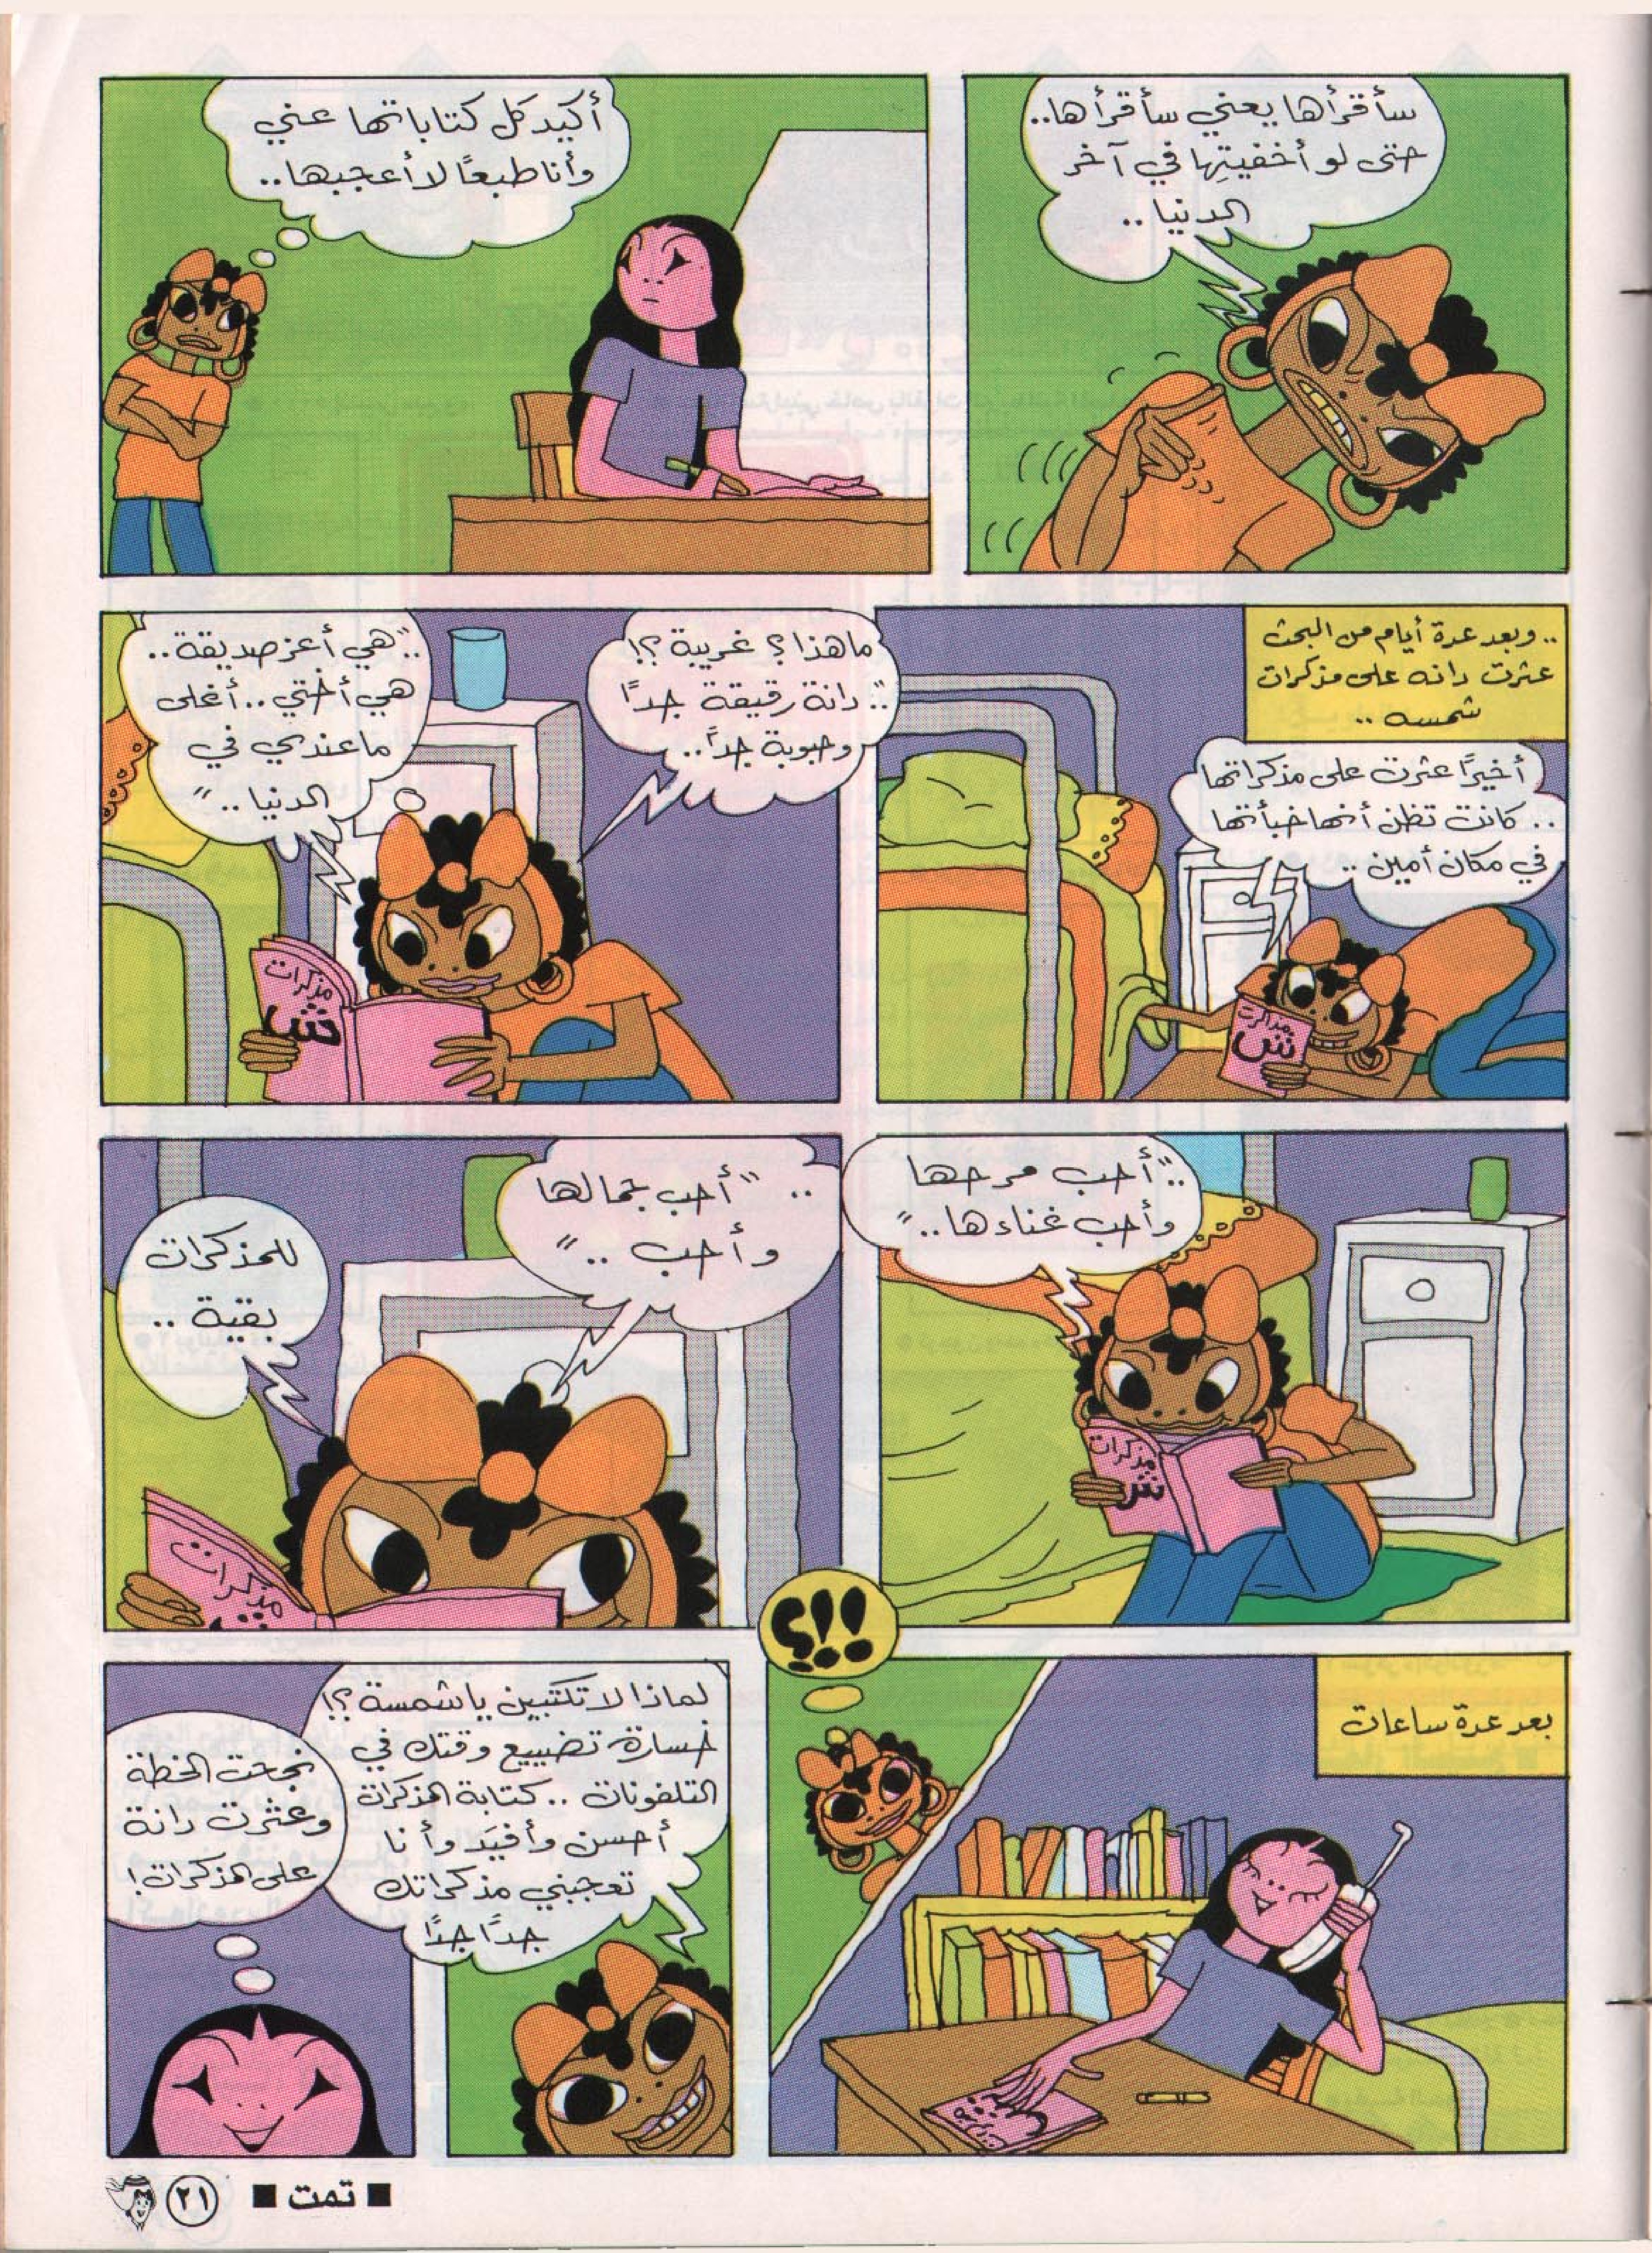 سأقرأها يعني سأقرأها..
حتى لو أخفيتِها في آخر
الدنيا ..
أكيد كل كتاباتها عني
وأنا طبعًا لا أعجبها..
.. وبعد عدة أيام من البحث
عثرت دانه على مذكرات
شمسه ..
أخيرًا عثرت على مذكراتها
.. كانت تظن أنها خبأتها
في مكان أمين ..
مذكرات
ش
ما هذا ؟ غريبة ؟!
.."دانة رقيقة جدًا
وحبوبة جدًا..
.."هي أعز صديقة..
هي أختي .. أغلى
ما عندي في
الدنيا .."
مذكرات
ش
.."أحب مرحها
وأحب غناءها.."
مذكرات
ش
.. "أحب جمالها
وأحب .."
للمذكرات
بقية ..
مذكرات
بعد عدة ساعات
!!؟
لماذا لا تكتبين يا شمسة ؟!
خسارة تضييع وقتك في
التلفونات .. كتابة المذكرات
أحسن وأفيَد وأنا
تعجبني مذكراتك
جدًا جدًا
نجحت الخطة
وعثرت دانة
على المذكرات !
■ تمت ■
٢١